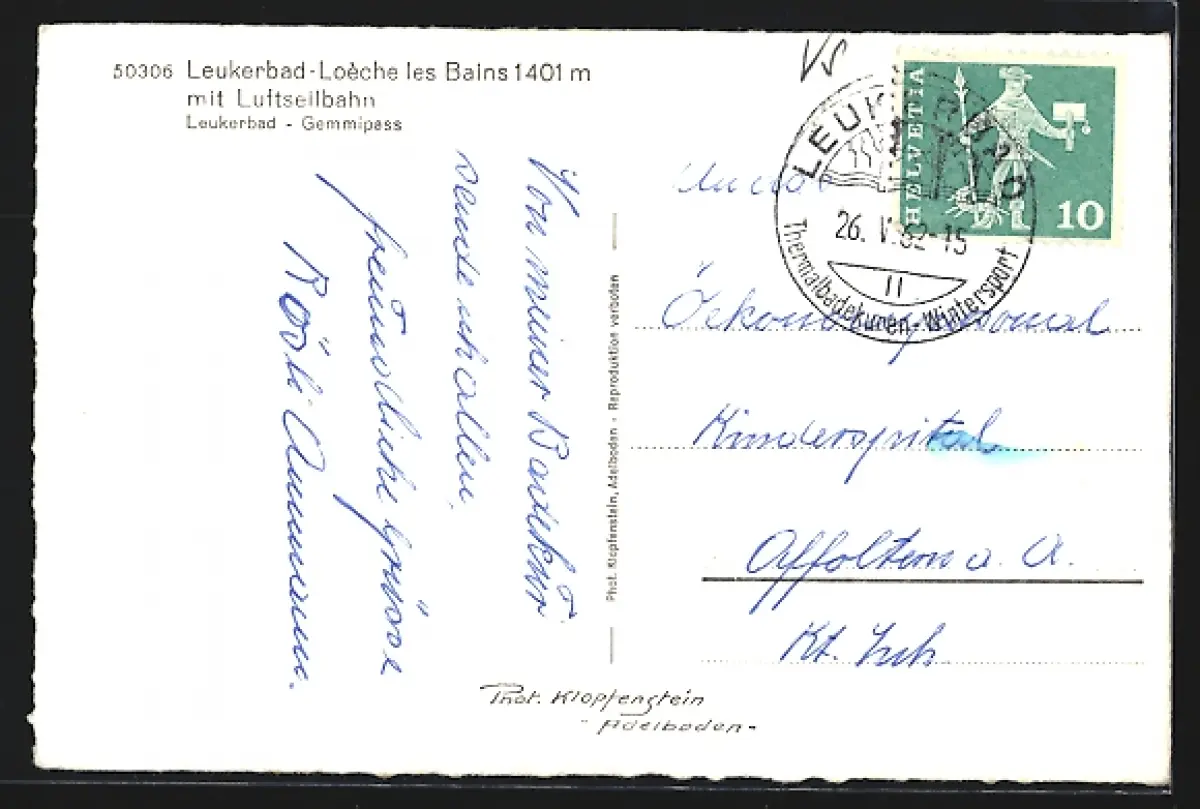 50306 Leukerbad-Loèche les Bains 1401 m
mit Luftseilbahn
Leukerbad - Gemmipass
VS
HELVETIA
10
LEUKERBAD
26. V. 62-15
II
Thermalbadekuren-Wintersport
Von meiner Badekur
sende ich allen
freundliche Grüsse
Rösli Ammann.
Phot. Klopfenstein, Adelboden - Reproduktion verboten
An das
Kinderspital
Affoltern a. A.
Kt. Zürich
Phot. Klopfenstein
- Adelboden -